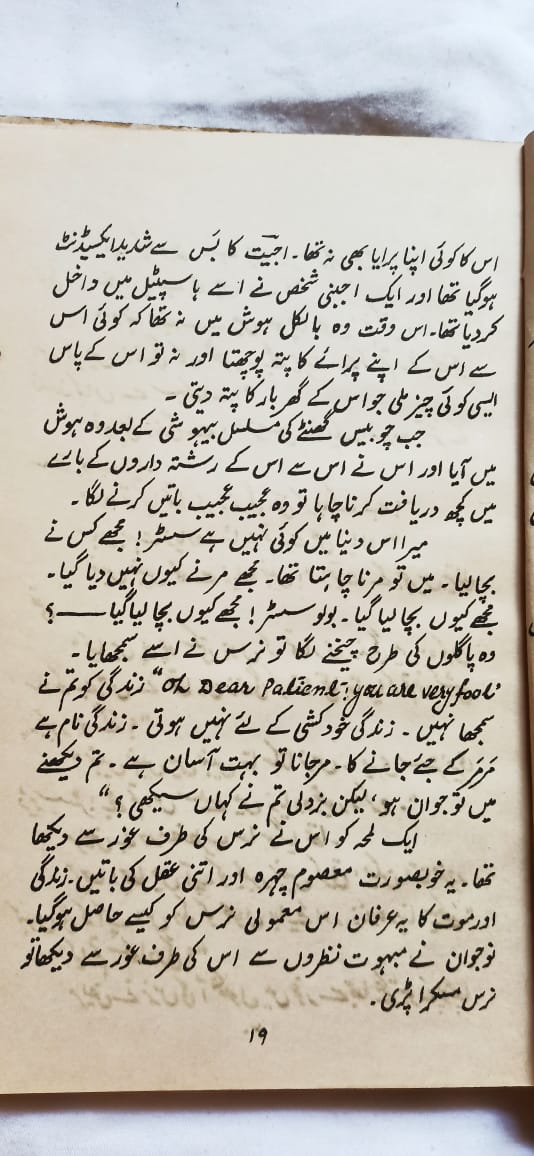 اس کا کوئی اپنا پرایا بھی نہ تھا۔ اجیت کا بَس سے شدید ایکسیڈنٹ
ہوگیا تھا اور ایک اجنبی شخص نے اسے ہاسپٹیل میں داخل
کردیا تھا۔ اس وقت وہ بالکل ہوش میں نہ تھا کہ کوئی اس
سے اس کے اپنے پرائے کا پتہ پوچھتا اور نہ تو اس کے پاس
ایسی کوئی چیز ملی جو اس کے گھر بار کا پتہ دیتی ۔
جب چوبیس گھنٹے کی مسلسل بیہوشی کے بعد وہ ہوش
میں آیا اور اس نے اس سے اس کے رشتہ داروں کے بارے
میں کچھ دریافت کرنا چاہا تو وہ عجیب عجیب باتیں کرنے لگا۔
میرا اس دینا میں کوئی نہیں ہے سسٹر! مجھے کس نے
بچالیا۔ میں تو مرنا چاہتا تھا۔ مجھے مرنے کیوں نہیں دیا گیا۔
مجھے کیوں بچا لیا گیا۔ بولو سسٹر! مجھے کیوں بچا لیا گیا ——؟
وہ پاگلوں کی طرح چیخنے لگا تو نرس نے اسے سمجھایا ۔
"Oh Dear Patient! you are very fool" زندگی کو تم نے
سمجھا نہیں۔ زندگی خودکشی کے لئے نہیں ہوتی ۔ زندگی نام ہے
مَر مَر کے جیئے جانے کا۔ مرجانا تو بہت آسان ہے ۔ تم دیکھنے
میں نوجوان ہو، لیکن بزدلی تم نے کہاں سیکھی؟"
ایک لمحہ کو اس نے نرس کی طرف غور سے دیکھا
تھا۔ یہ خوبصورت معصوم چہرہ اور اتنی عقل کی باتیں۔ زندگی
اور موت کا یہ عرفان اس معمولی نرس کو کیسے حاصل ہوگیا۔
نوجوان نے مبہوت نظروں سے اس کی طرف غور سے دیکھا تو
نرس مسکرا پڑی۔
۱۹